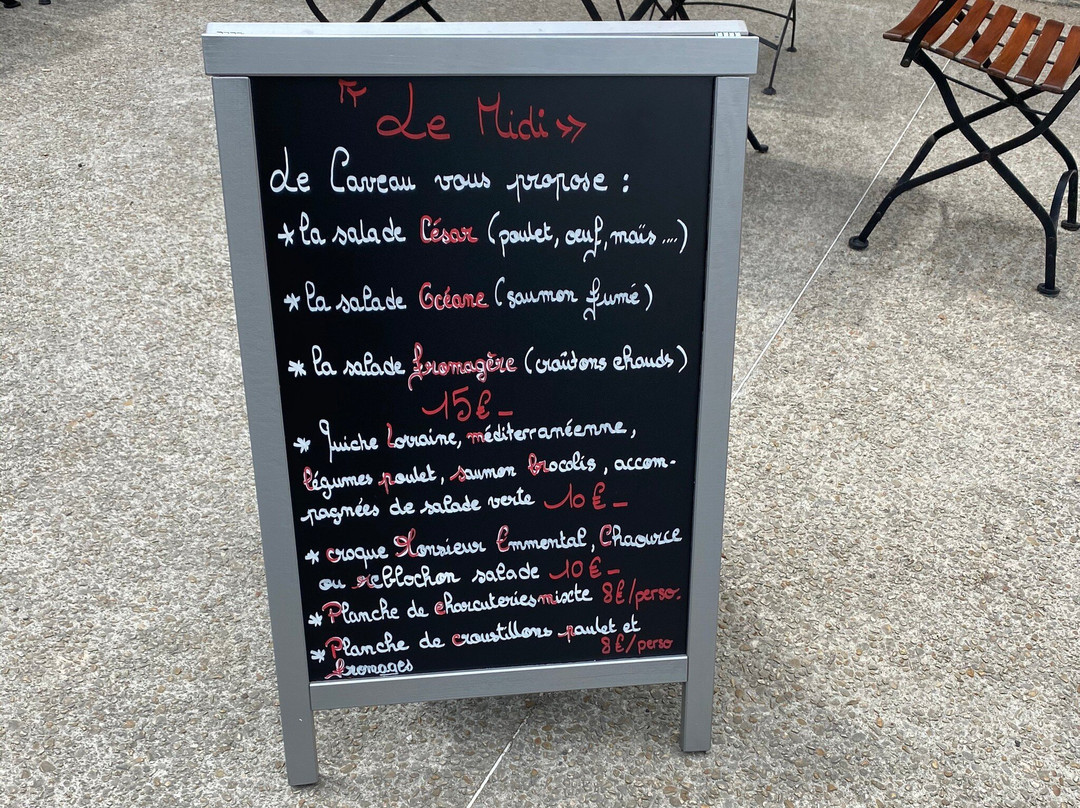 « Le Midi »
Le Caveau vous propose :
* la salade César (poulet, œuf, maïs ....)
* la salade Océane (saumon fumé)
* la salade fromagère (craûtons chauds)
15€ -
* Quiche Lorraine, méditerranéenne,
légumes poulet, saumon brocolis, accom-
pagnées de salade verte 10 € -
* croque Monsieur Emmental, Chaource
ou reblochon salade 10 € -
* Planche de charcuteries mixte 8€/perso.
* Planche de croustillons poulet et
fromages 8€/perso